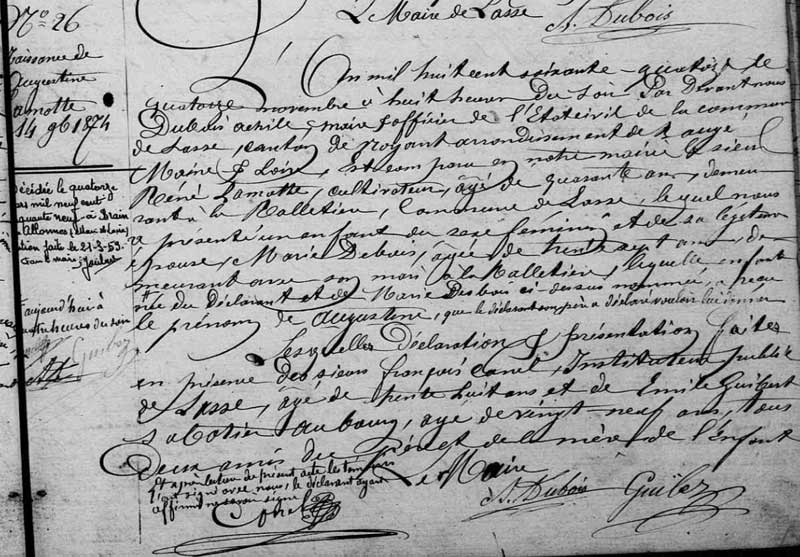 Le Maire de Lasse
A. Dubois
N° 26
Naissance de
Augustine
Lamotte
14 9b 1874
L'An mil huit cent soixante-quatorze le
quatorze novembre à huit heures du soir Par Devant nous
Dubois achile, maire officier de l'Etat civil de la commune
de Lasse, canton de Noyant arrondissement de Baugé,
Maine & Loire, est comparu en notre mairie le sieur
René Lamotte, cultivateur, agé de quarante ans, demeu
rant à la Ralletière, Commune de Lasse, lequel nous
a présenté un enfant du sexe féminin et de sa légitime
épouse, Marie Desbois, agée de trente sept ans, de
meurant avec son mari à la Ralletière, laquelle enfant
née du Déclarant et de Marie Desbois ci-dessus nommée, a reçu
le prénom de Augustine, que le déclarant son père a déclaré vouloir lui donner
Décédée le quatorze
mars mil neuf cent
cinquante neuf à Brain
s/ Allonnes (Maine et Loire)
faite le 21-3-59.
Le maire,
aujourd'hui à
quatre heures du soir
Guibez
Lesquelles Déclaration & présentation faites
en présence des sieurs françois Canel, Instituteur public
de Lasse, agé de trente huit ans et de Emile Guibert
sabotier au bourg, agé de vingt-neuf ans, tous
Deux amis du père et de la mère de l'Enfant
Et après lecture du présent acte les témoins
l'ont signé avec nous, le déclarant ayant
affirmé ne savoir signer
Le Maire
A. Dubois
Guibez